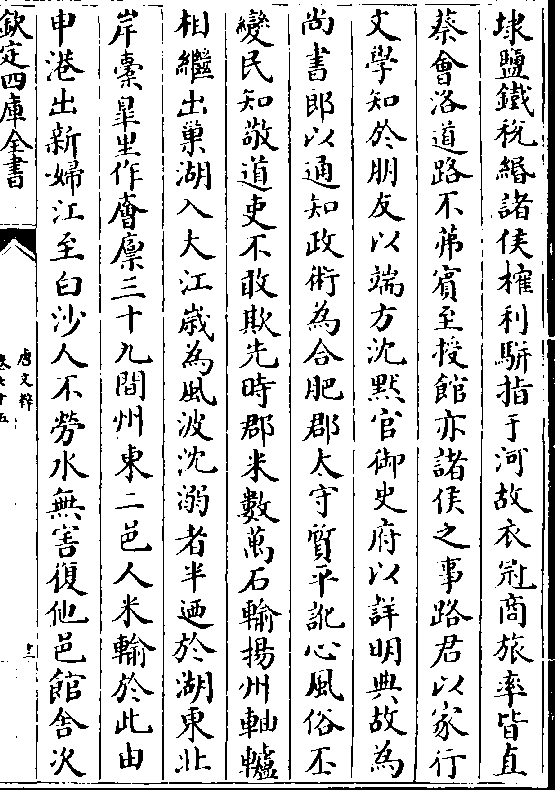 埭鹽鐵税緡諸侯榷利駢指于河故衣冠商旅率皆直
蔡會洛道路不茀賓至授館亦諸侯之事路君以家行
文學知於朋友以端方沈默官御史府以詳明典故為
尚書郎以通知政術為合肥郡太守質平訛心風俗丕
變民知敬道吏不敢欺先時郡米數萬石輸揚州軸轤
相繼出巢湖入大江歲為風波沈溺者半迺於湖東北
岸橐臯里作廥廩三十九間州東二邑人米輸於此由
申港出新婦江至白沙人不勞水無害復他邑館舍次
欽定四庫全書
唐文粹